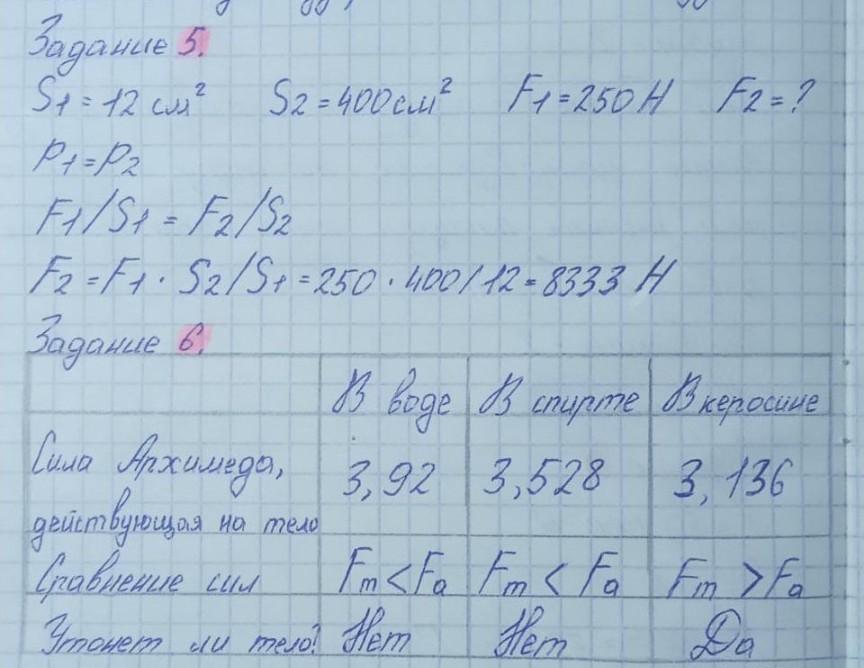 Задание 5.
S1 = 12 см² S2 = 400 см² F1 = 250 Н F2 = ?
P1 = P2
F1/S1 = F2/S2
F2 = F1 · S2/S1 = 250 · 400/12 = 8333 Н
Задание 6.
В воде В спирте В керосине
Сила Архимеда, 3,92 3,528 3,136
действующая на тело
Сравнение сил Fт < Fа Fт < Fа Fт > Fа
Утонет ли тело? Нет Нет Да